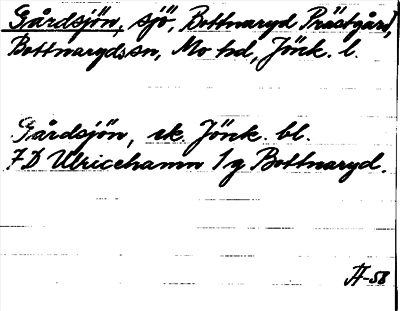 Gårdsjön, sjö, Bottnaryd Prästgård,
Bottnaryds sn, Mo hd, Jönk. l.
Gårdsjön, ek. Jönk. bl.
7D Ulricehamn 1g Bottnaryd.